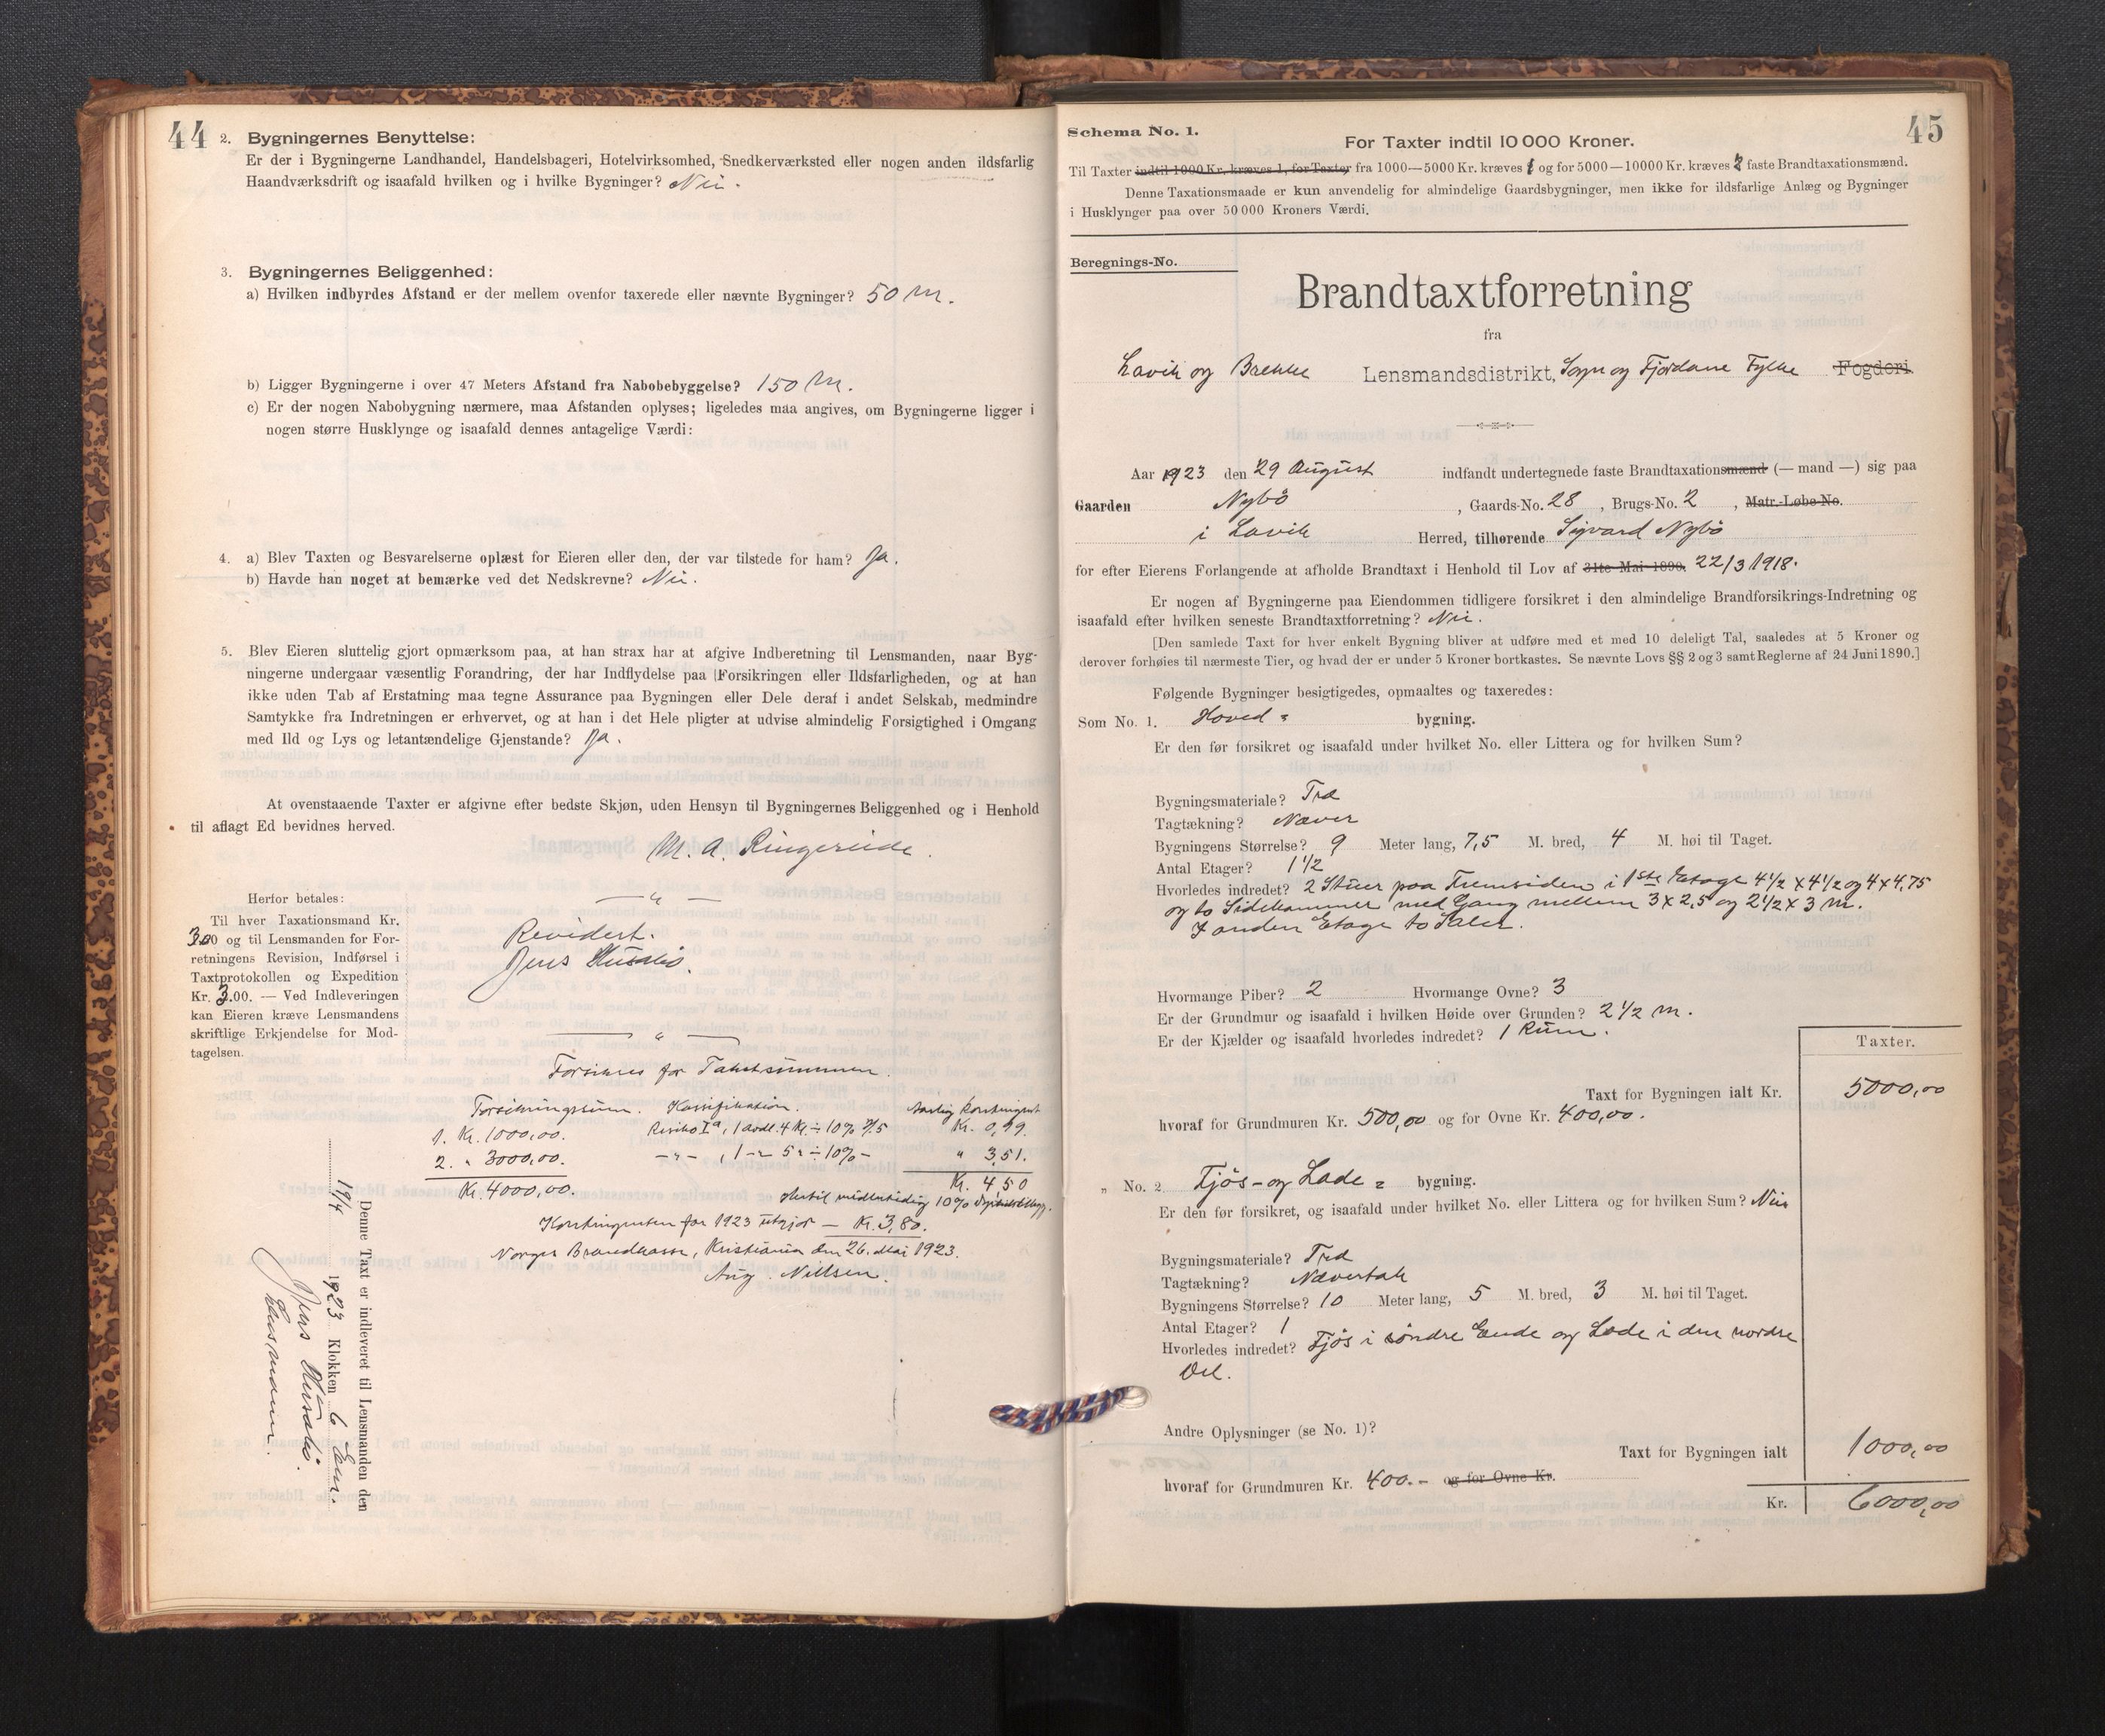 44
2. Bygningernes Benyttelse:
Er der i Bygningerne Landhandel, Handelsbageri, Hotelvirksomhed, Snedkerværksted eller nogen anden ildsfarlig
Haandværksdrift og isaafald hvilken og i hvilke Bygninger? Nei.
3. Bygningernes Beliggenhed:
a) Hvilken indbyrdes Afstand er der mellem ovenfor taxerede eller nævnte Bygninger? 50 m.
b) Ligger Bygningerne i over 47 Meters Afstand fra Nabobebyggelse? 150 m.
c) Er der nogen Nabobygning nærmere, maa Afstanden oplyses; ligeledes maa angives, om Bygningerne ligger i
nogen større Husklynge og isaafald dennes antagelige Værdi:
4. a) Blev Taxten og Besvarelserne oplæst for Eieren eller den, der var tilstede for ham? Ja.
b) Havde han noget at bemærke ved det Nedskrevne? Nei.
5. Blev Eieren sluttelig gjort opmærksom paa, at han strax har at afgive Indberetning til Lensmanden, naar Byg-
ningerne undergaar væsentlig Forandring, der har Indflydelse paa Forsikringen eller Ildsfarligheden, og at han
ikke uden Tab af Erstatning maa tegne Assurance paa Bygningen eller Dele deraf i andet Selskab, medmindre
Samtykke fra Indretningen er erhvervet, og at han i det Hele pligter at udvise almindelig Forsigtighed i Omgang
med Ild og Lys og letantændelige Gjenstande? Ja.
At ovenstaaende Taxter er afgivne efter bedste Skjøn, uden Hensyn til Bygningernes Beliggenhed og i Henhold
til aflagt Ed bevidnes herved.
M. A. Ringereide.
Herfor betales:
Til hver Taxationsmand Kr.
3.00 og til Lensmanden for For-
retningens Revision, Indførsel i
Taxtprotokollen og Expedition
Kr. 3.00. — Ved Indleveringen
kan Eieren kræve Lensmandens
skriftlige Erkjendelse for Mod-
tagelsen.
Revidert.
Jens Husabø.
Forsikres for Takstsummen.
Forsikringssum. Klassifikation. Aarlig kontingent
1. Kr. 1000,00. Risiko Ia, 1 avdl. 4 Kl. ÷ 10% Kr. 0,99
2. " 3000,00. 5 ÷ 10% " 3,51.
Kr. 4000,00. Kr. 4 50
Hertil midlertidig 10%
Kontingenten for 1923 utgjør — Kr. 3,80.
Norges Brandkasse, Kristiania den 26. Mai 1923.
Aug. Nilssen.
Denne Taxt er indleveret til Lensmanden den
19/4 1923 Klokken 6 Em.
Jens Husabø.
Lensmann.
45
Schema No. 1.
For Taxter indtil 10 000 Kroner.
Til Taxter indtil 1000 Kr. kræves 1, for Taxter fra 1000—5000 Kr. kræves 1 og for 5000—10000 Kr. kræves 2 faste Brandtaxationsmænd.
Denne Taxationsmaade er kun anvendelig for almindelige Gaardsbygninger, men ikke for ildsfarlige Anlæg og Bygninger
i Husklynger paa over 50 000 Kroners Værdi.
Beregnings-No.
Brandtaxtforretning
fra
Lavik og Brekke Lensmandsdistrikt, Sogn og Fjordane Fylke Fogderi
Aar 1923 den 29 August indfandt undertegnede faste Brandtaxationsmænd (— mand —) sig paa
Gaarden Nybø, Gaards-No. 28, Brugs-No. 2, Matr.-Løbe-No.
i Lavik Herred, tilhørende Sigvard Nybø
for efter Eierens Forlangende at afholde Brandtaxt i Henhold til Lov af 31te Mai 1890. 22/3 1918.
Er nogen af Bygningerne paa Eiendommen tidligere forsikret i den almindelige Brandforsikrings-Indretning og
isaafald efter hvilken seneste Brandtaxtforretning? Nei.
[Den samlede Taxt for hver enkelt Bygning bliver at udføre med et med 10 deleligt Tal, saaledes at 5 Kroner og
derover forhøies til nærmeste Tier, og hvad der er under 5 Kroner bortkastes. Se nævnte Lovs §§ 2 og 3 samt Reglerne af 24 Juni 1890.]
Følgende Bygninger besigtigedes, opmaaltes og taxeredes:
Som No. 1. Hoved = bygning.
Er den før forsikret og isaafald under hvilket No. eller Littera og for hvilken Sum?
Bygningsmateriale? Træ
Tagtækning? Næver
Bygningens Størrelse? 9 Meter lang, 7,5 M. bred, 4 M. høi til Taget.
Antal Etager? 1 1/2
Hvorledes indredet? 2 Stuer paa Fremsiden i 1ste Etage 4 1/2 x 4 1/2 og 4 x 4,75
og to Sidekammer med Gang mellem 3 x 2,5 og 2 1/2 x 3 m.
I anden Etage to Saler.
Hvormange Piber? 2 Hvormange Ovne? 3
Er der Grundmur og isaafald i hvilken Høide over Grunden? 2 1/2 m.
Er der Kjælder og isaafald hvorledes indredet? 1 Rum.
Taxter.
Taxt for Bygningen ialt Kr. 5000,00
hvoraf for Grundmuren Kr. 500,00 og for Ovne Kr. 400,00.
" No. 2 Fjøs - og Lade = bygning.
Er den før forsikret, og isaafald under hvilket No. eller Littera og for hvilken Sum? Nei
Bygningsmateriale? Træ
Tagtækning? Nævertak
Bygningens Størrelse? 10 Meter lang, 5 M. bred, 3 M. høi til Taget.
Antal Etager? 1
Hvorledes indredet? Fjøs i søndre Ende og Lade i den nordre
Del.
Andre Oplysninger (se No. 1)?
Taxt for Bygningen ialt 1000,00
hvoraf for Grundmuren Kr. 400.- og for Ovne Kr.
Kr. 6000,00